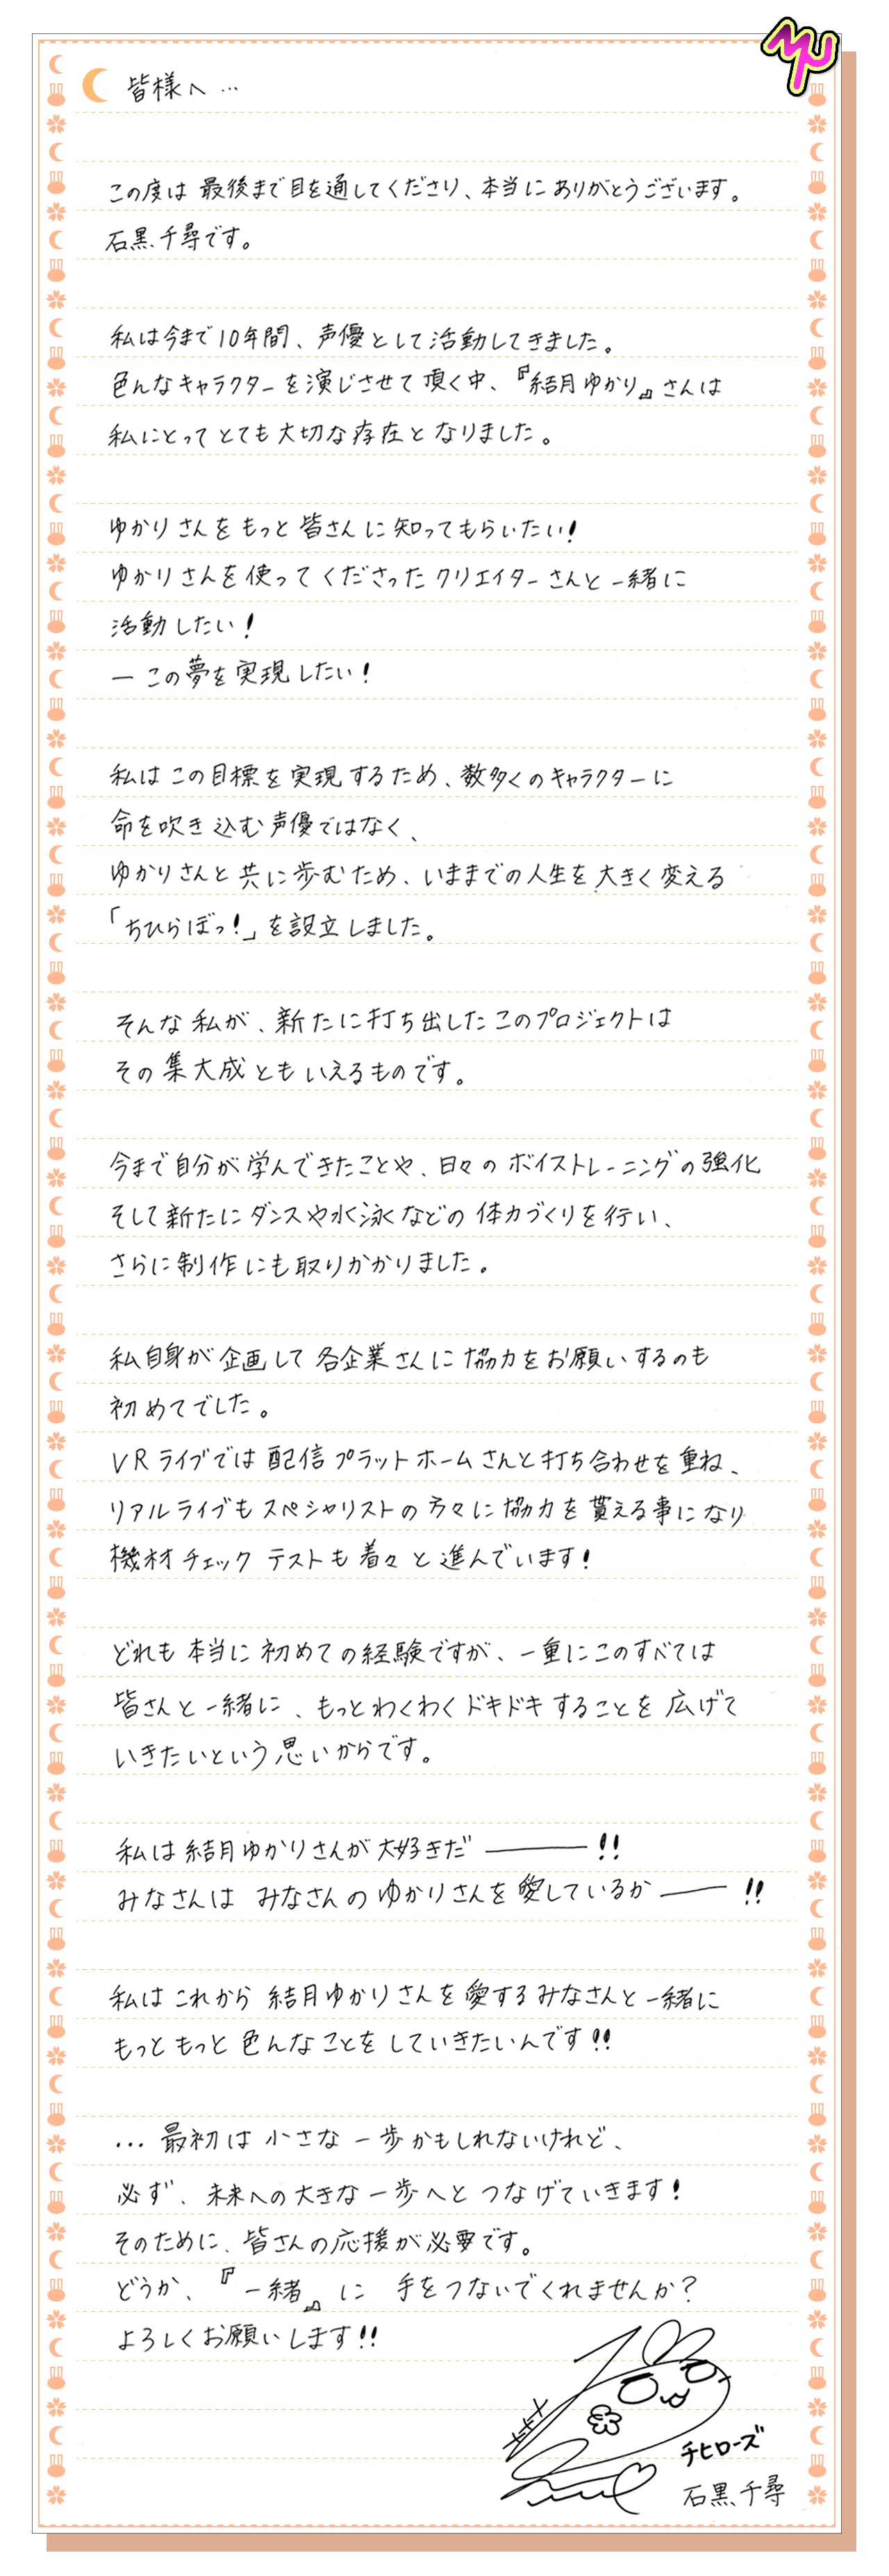 皆様へ…
この度は 最後まで目を通してくださり、本当にありがとうございます。
石黒千尋です。
私は今まで10年間、声優として活動してきました。
色んなキャラクターを演じさせて頂く中、『結月ゆかり』さんは
私にとってとても大切な存在となりました。
ゆかりさんをもっと皆さんに知ってもらいたい!
ゆかりさんを使ってくださったクリエイターさんと一緒に
活動したい!
ーこの夢を実現したい!
私はこの目標を実現するため、数多くのキャラクターに
命を吹き込む声優ではなく、
ゆかりさんと共に歩むため、いままでの人生を大きく変える
「ちひらぼっ!」を設立しました。
そんな私が、新たに打ち出したこのプロジェクトは
その集大成ともいえるものです。
今まで自分が学んできたことや、日々のボイストレーニングの強化
そして新たにダンスや水泳などの体力づくりを行い、
さらに制作にも取りかかりました。
私自身が企画して各企業さんに協力をお願いするのも
初めてでした。
VRライブでは配信プラットホームさんと打ち合わせを重ね、
リアルライブもスペシャリストの方々に協力を貰える事になり
機材チェックテストも着々と進んでいます!
どれも本当に初めての経験ですが、一重にこのすべては
皆さんと一緒に、もっとわくわくドキドキすることを広げて
いきたいという思いからです。
私は結月ゆかりさんが大好きだ―――!!
みなさんは みなさんのゆかりさんを愛しているか――!!
私はこれから 結月ゆかりさんを愛するみなさんと一緒に
もっともっと色んなことをしていきたいんです!!
…最初は小さな一歩かもしれないけれど、
必ず、未来への大きな一歩へとつなげていきます!
そのために、皆さんの応援が必要です。
どうか、『一緒』に 手をつないでくれませんか?
よろしくお願いします!!
チヒローズ
石黒千尋